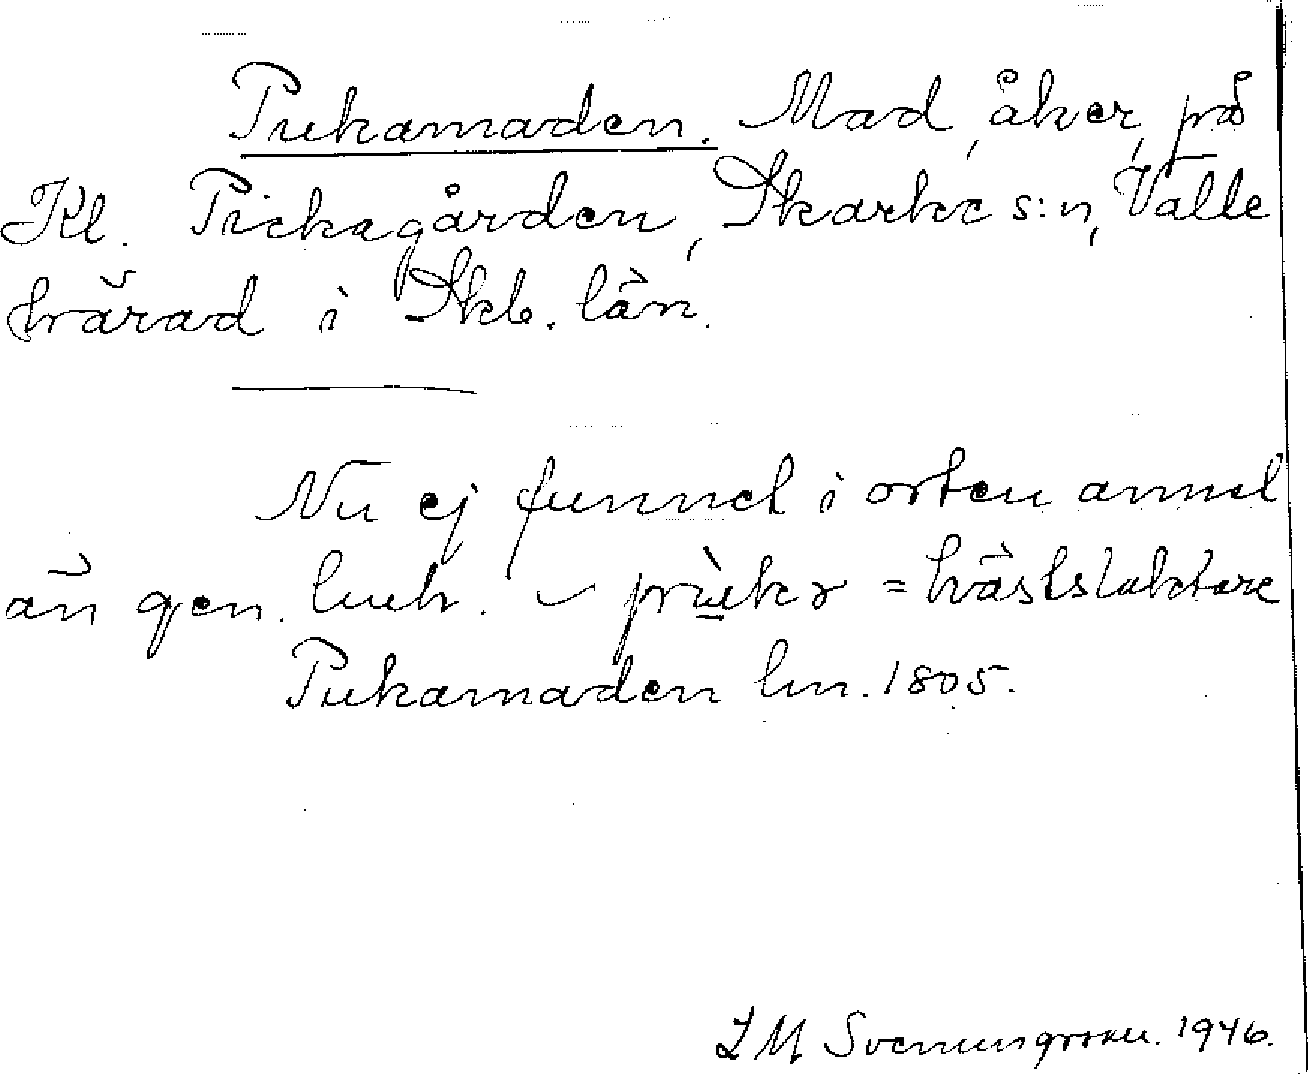 Pukamaden. Mad, åker, på
Kl. Prickagården, Skarke s:n, Valle
härad i Skb. län.
Nu ej funnet i orten annat
än gen. luch. – = hästslaktare
Pukamaden lm. 1805.
1946.